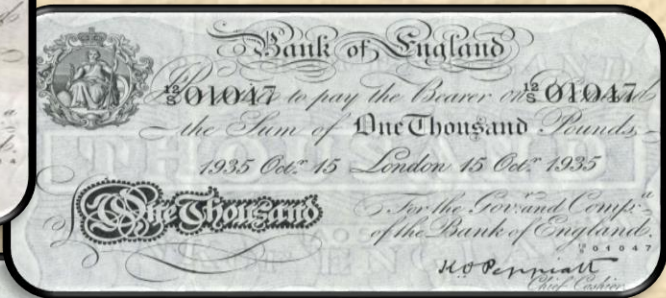 Bank of England
12/S 01047 to pay the Bearer on 12/S 01047
the Sum of One Thousand Pounds
1935 Octr. 15 London 15 Octr. 1935
One Thousand
For the Govr. and Compa.
of the Bank of England.
12/S 01047
K O Peppiatt
Chief Cashier
THOUSAND